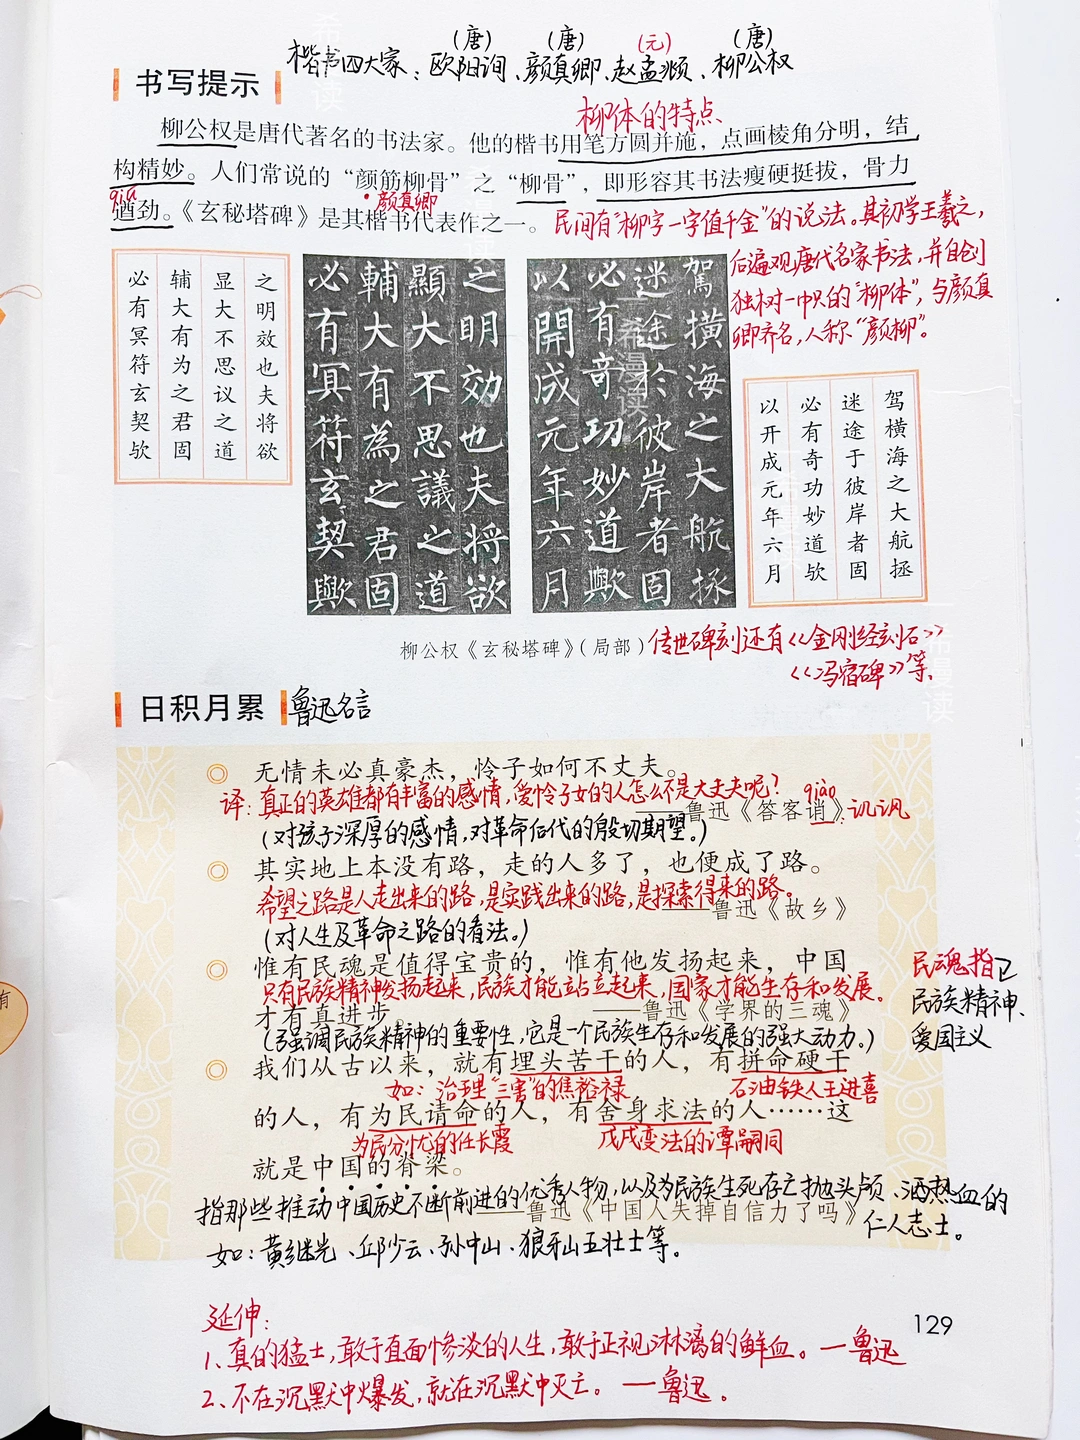 (唐) (唐) (元) (唐)
楷书四大家：欧阳询、颜真卿、赵孟頫、柳公权
书写提示
柳体的特点
柳公权是唐代著名的书法家。他的楷书用笔方圆并施，点画棱角分明，结
构精妙。人们常说的“颜筋柳骨”之“柳骨”，即形容其书法瘦硬挺拔，骨力
qiú
颜真卿
遒劲。《玄秘塔碑》是其楷书代表作之一。
民间有“柳字一字值千金”的说法。其初学王羲之，
后遍观唐代名家书法，并自创
独树一帜的“柳体”，与颜真
卿齐名，人称“颜柳”。
之明效也夫将欲
显大不思议之道
辅大有为之君固
必有冥符玄契欤
之明効也夫将欲
顯大不思議之道
輔大有為之君固
必有冥符玄契歟
駕横海之大航拯
迷途於彼岸者固
必有奇功妙道歟
以開成元年六月
驾横海之大航拯
迷途于彼岸者固
必有奇功妙道欤
以开成元年六月
柳公权《玄秘塔碑》（局部）
传世碑刻还有《金刚经刻石》
《冯宿碑》等、
日积月累
鲁迅名言
◎ 无情未必真豪杰，怜子如何不丈夫。
译：真正的英雄都有丰富的感情，爱怜子女的人怎么不是大丈夫呢？
qiào
——鲁迅《答客诮》
：讥讽
(对孩子深厚的感情，对革命后代的殷切期望。)
◎ 其实地上本没有路，走的人多了，也便成了路。
希望之路是人走出来的路，是实践出来的路，是探索得来的路。
——鲁迅《故乡》
(对人生及革命之路的看法。)
◎ 惟有民魂是值得宝贵的，惟有他发扬起来，中国
只有民族精神发扬起来，民族才能站立起来，国家才能生存和发展。
才有真进步。
——鲁迅《学界的三魂》
(强调民族精神的重要性，它是一个民族生存和发展的强大动力。)
民魂指
民族精神、
爱国主义
◎ 我们从古以来，就有埋头苦干的人，有拼命硬干
如：治理“三害”的焦裕禄
石油铁人王进喜
的人，有为民请命的人，有舍身求法的人……这
为民分忧的任长霞
戊戌变法的谭嗣同
就是中国的脊梁。
指那些推动中国历史不断前进的优秀人物，以及为民族生死存亡抛头颅、洒热血的
仁人志士。
——鲁迅《中国人失掉自信力了吗》
如：黄继光、邱少云、孙中山、狼牙山五壮士等。
延伸：
1、真的猛士，敢于直面惨淡的人生，敢于正视淋漓的鲜血。—鲁迅
2、不在沉默中爆发，就在沉默中灭亡。—鲁迅。
129
有
希漫读
希漫读
希漫读